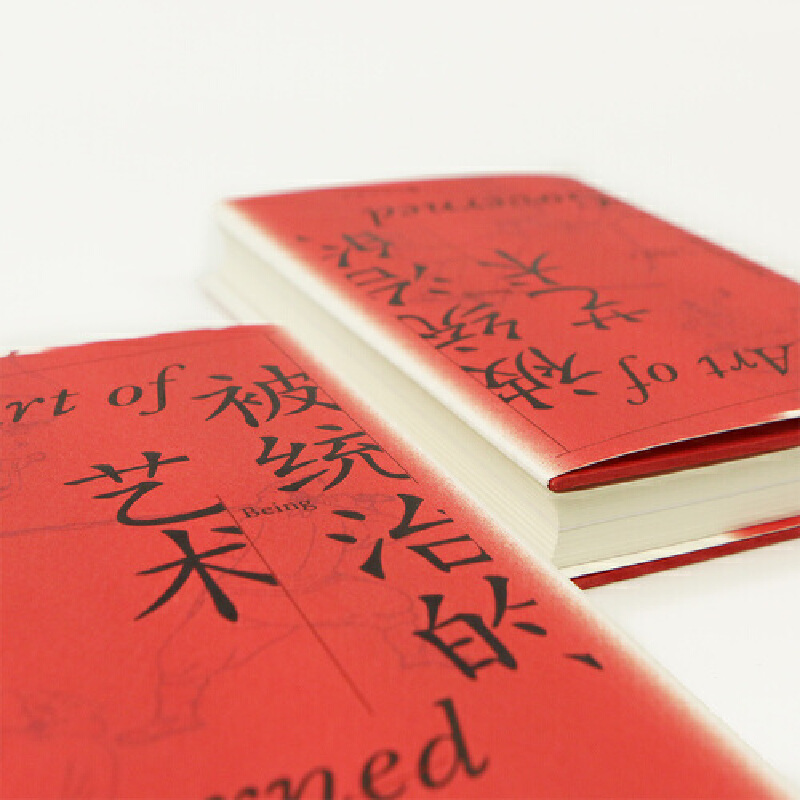 Art of
被统治的
艺术
Being
Governed
Art of
被统治的
艺术
Governed